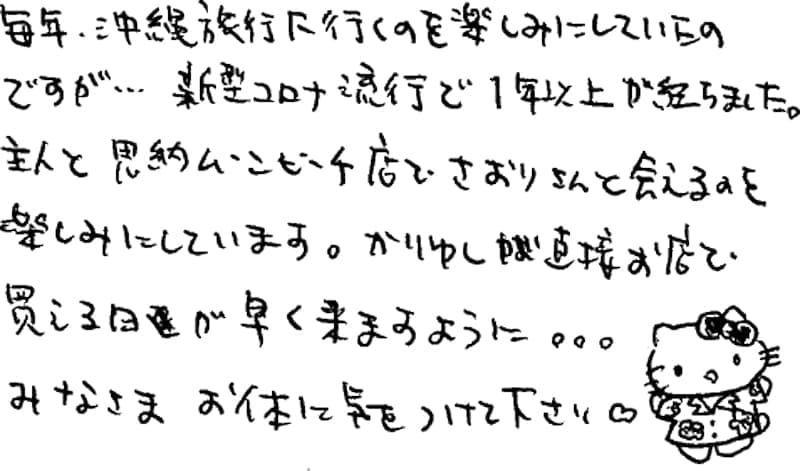 毎年、沖縄旅行に行くのを楽しみにしていたの
ですが… 新型コロナ流行で1年以上が経ちました。
主人と恩納ムーンビーチ店でさおりさんと会えるのを
楽しみにしています。かりゆしが直接お店で
買える日が早く来ますように。。。
みなさまお体に気をつけて下さい♡